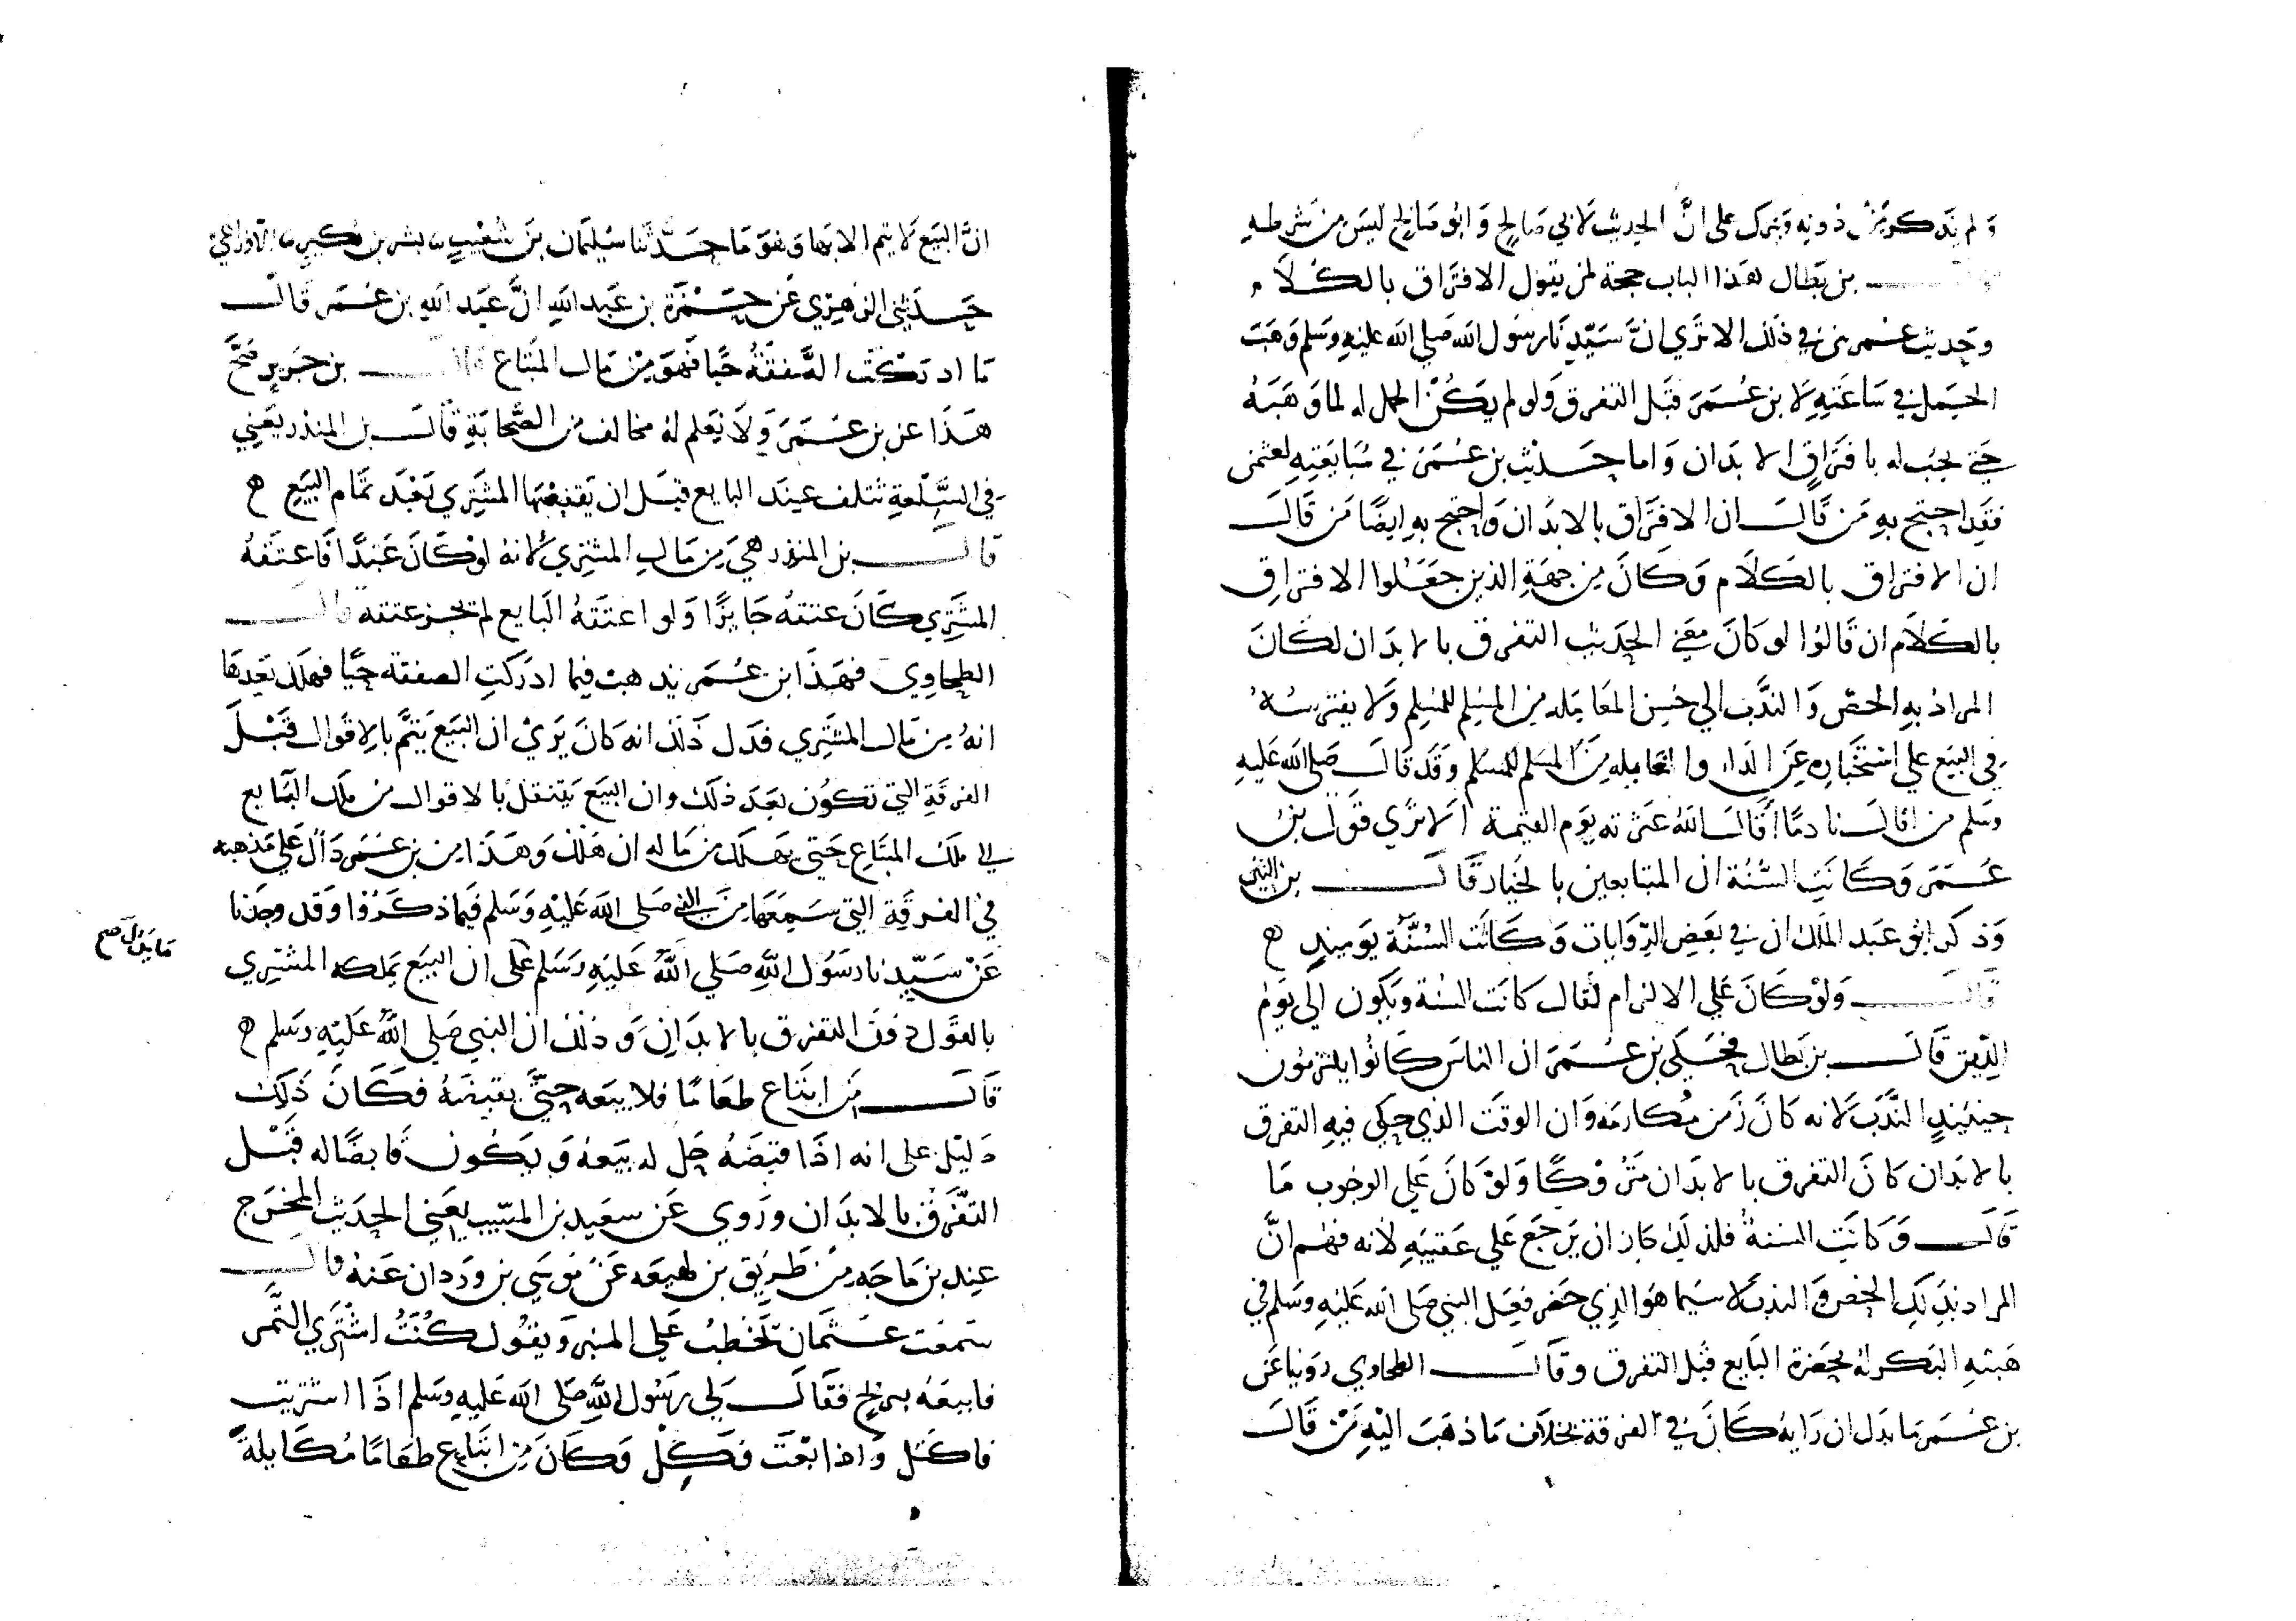 ولم يذكر من دونه ويترك على ان الحديث لابي صالح وابو صالح ليس من شرطه
بن بطال هذا الباب حجة لمن يقول الافتراق بالكلام
وحديث عمر بين في ذلك الا تري ان سيدنا رسول الله صلي الله عليه وسلم وهب
الجمل في ساعته لابن عمر قبل التفرق ولو لم يكن الجمل له لما وهبه
حتي يجب له بافتراق الابدان واما حديث بن عمر في مبايعته لعثمن
فقد احتج به من قال ان الافتراق بالابدان واحتج به ايضا من قال
ان الافتراق بالكلام وكان من جهة الذين جعلوا الافتراق
بالكلام ان قالوا لو كان معني الحديث التفرق بالابدان لكان
المراد به الحض والندب الي حسن المعامله من المسلم للمسلم ولا يفترسه
في البيع علي استخباره عن الداء والمعامله من المسلم للمسلم وقد قال صلي الله عليه
وسلم من اقال نادما اقال الله عثرته يوم القيمة الا تري قول بن
عمر وكانت السنة ان المتبايعين بالخيار قال بن التين
وذكر ابو عبد الملك ان في بعض الروايات وكانت السنة يوميذ ه
قال ولو كان علي الالزام لقال كانت السنة ويكون الي يوم
الدين قال بن بطال فحكي بن عمر ان الناس كانوا يلتزمون
حينيذ الندب لانه كان زمن مكارمه وان الوقت الذي حكي فيه التفرق
بالابدان كان التفرق بالابدان متروكا ولو كان علي الوجوب ما
قال وكانت السنة فلذلك جاز ان يرجع علي عقبيه لانه فهم ان
المراد بذلك الحض والندب لا سيما هو الذي حضر فعل النبي صلى الله عليه وسلم في
هبته البكر له بحضرة البايع قبل التفرق وقال الطحاوي روينا عن
بن عمر ما يدل ان رايه كان في الفرقة بخلاف ما ذهب اليه من قال
ان البيع لا يتم الا بها وهو ما حدثنا سليمان بن شعيب ثنا بشر بن بكير ثنا الاوزاعي
حدثني الزهري عن حمزة بن عبد الله ان عبد الله بن عمر قال
ما ادركت الصفقة حيا فهو من مال المبتاع قال بن جرير صح
هذا عن بن عمر ولا يعلم له مخالف من الصحابة قال بن المنذر يعني
في السلعة تتلف عند البايع قبل ان يقبضها المشتري بعد تمام البيع ه
قال بن المنذر هي من مال المشتري لانه لو كان عبدا فاعتقه
المشتري كان عتقه جايزا ولو اعتقه البايع لم يجز عتقه قال
الطحاوي فهذا ابن عمر يذهب فيما ادركت الصفقة حيا فهلك بعدها
انه من مال المشتري فدل ذلك انه كان يري ان البيع يتم بالاقوال قبل
الفرقة التي تكون بعد ذلك وان البيع يتنقل بالاقوال من ملك البايع
الي ملك المبتاع حتي يهلك من ماله ان هلك وهذا من بن عمر دال علي مذهبه
في الفرقة التي سمعها من النبي صلى الله عليه وسلم فيما ذكروا وقد وجدنا
ما يدل صح
عن سيدنا رسول الله صلي الله عليه وسلم على ان البيع يملكه المشتري
بالقول دون التفرق بالابدان وذلك ان النبي صلى الله عليه وسلم ه
قال من ابتاع طعاما فلا يبعه حتي يقبضه فكان ذلك
دليل على انه اذا قبضه حل له بيعه ويكون قابضا له قبل
التفرق بالابدان وروي عن سعيد بن المسيب يعني الحديث المخرج
عند بن ماجه من طريق بن لهيعه عن موسي بن وردان عنه قال
سمعت عثمان يخطب على المنبر ويقول كنت اشتري التمر
فابيعه بربح فقال لي رسول الله صلى الله عليه وسلم اذا اشتريت
فاكتل واذا بعت فكل وكان من ابتاع طعاما مكايلة